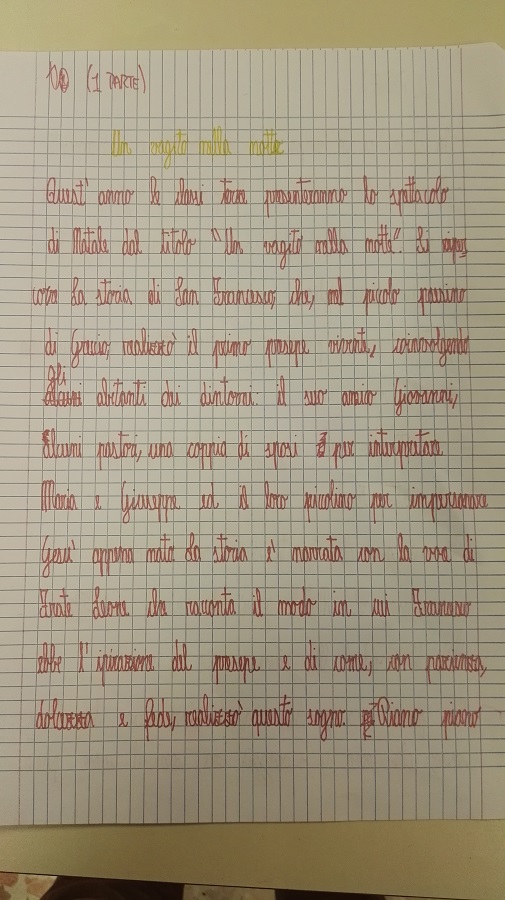 (1 PARTE)
Un vagito nella notte
Quest'anno le classi terze presenteranno lo spettacolo
di Natale dal titolo "Un vagito nella notte". Si riper
corre la storia di San Francesco, che, nel piccolo paesino
di Greccio, realizzò il primo presepe vivente, coinvolgendo
gli abitanti dei dintorni: il suo amico Giovanni,
alcuni pastori, una coppia di sposi per interpretare
Maria e Giuseppe ed il loro piccolino per impersonare
Gesù appena nato. La storia è narrata con la voce di
Frate Leone che racconta il modo in cui Francesco
ebbe l'ispirazione del presepe e di come, con pazienza,
dolcezza e fede, realizzò questo sogno. Piano piano